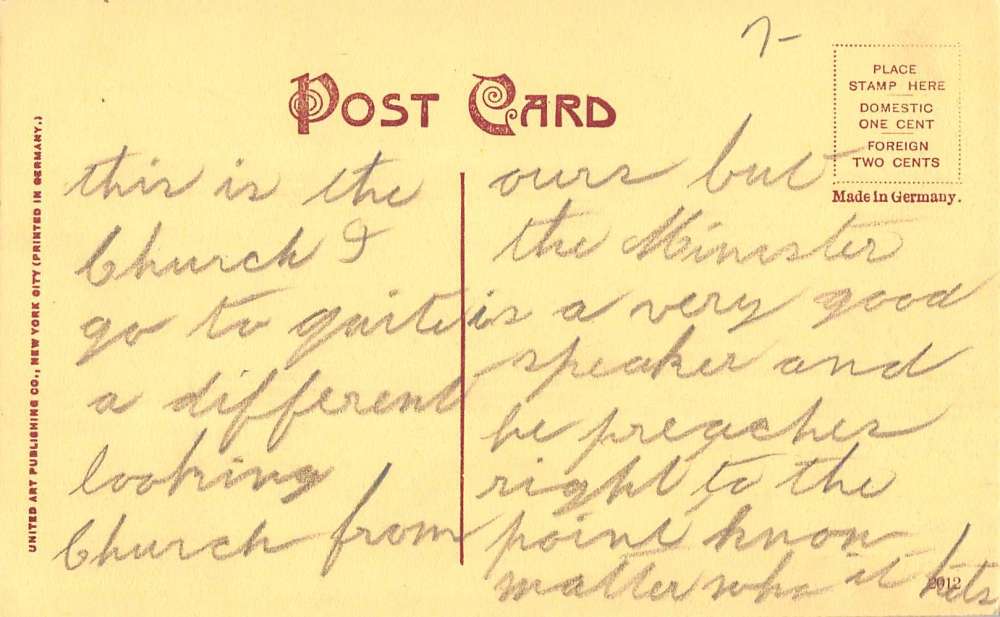 7-
POST CARD
PLACE
STAMP HERE
DOMESTIC
ONE CENT
FOREIGN
TWO CENTS
Made in Germany.
UNITED ART PUBLISHING CO., NEW YORK CITY (PRINTED IN GERMANY.)
this is the
Church I
go to quite
a different
looking
Church from
ours but
the Minister
is a very good
speaker and
he preaches
right to the
point know
matter who it hits
2012